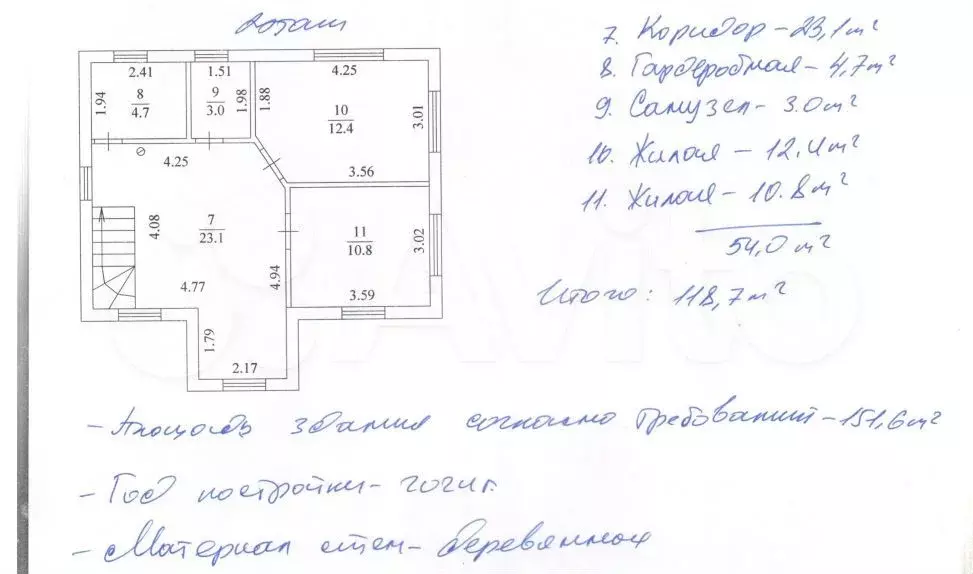 2этаж
7. Коридор - 23,1 м²
8. Гардеробная - 4,7 м²
9. Санузел - 3.0 м²
10. Жилая - 12.4 м²
11. Жилая - 10.8 м²
54,0 м²
Итого: 118,7 м²
2.41
1.51
4.25
1.94
8
4.7
9
3.0
1.98
1.88
10
12.4
3.01
4.25
3.56
4.08
7
23.1
11
10.8
3.02
4.77
4.94
3.59
1.79
2.17
- Площадь здания согласно требований - 151,6 м²
- Год постройки - 2021 г.
- Материал стен - деревянное
Avito